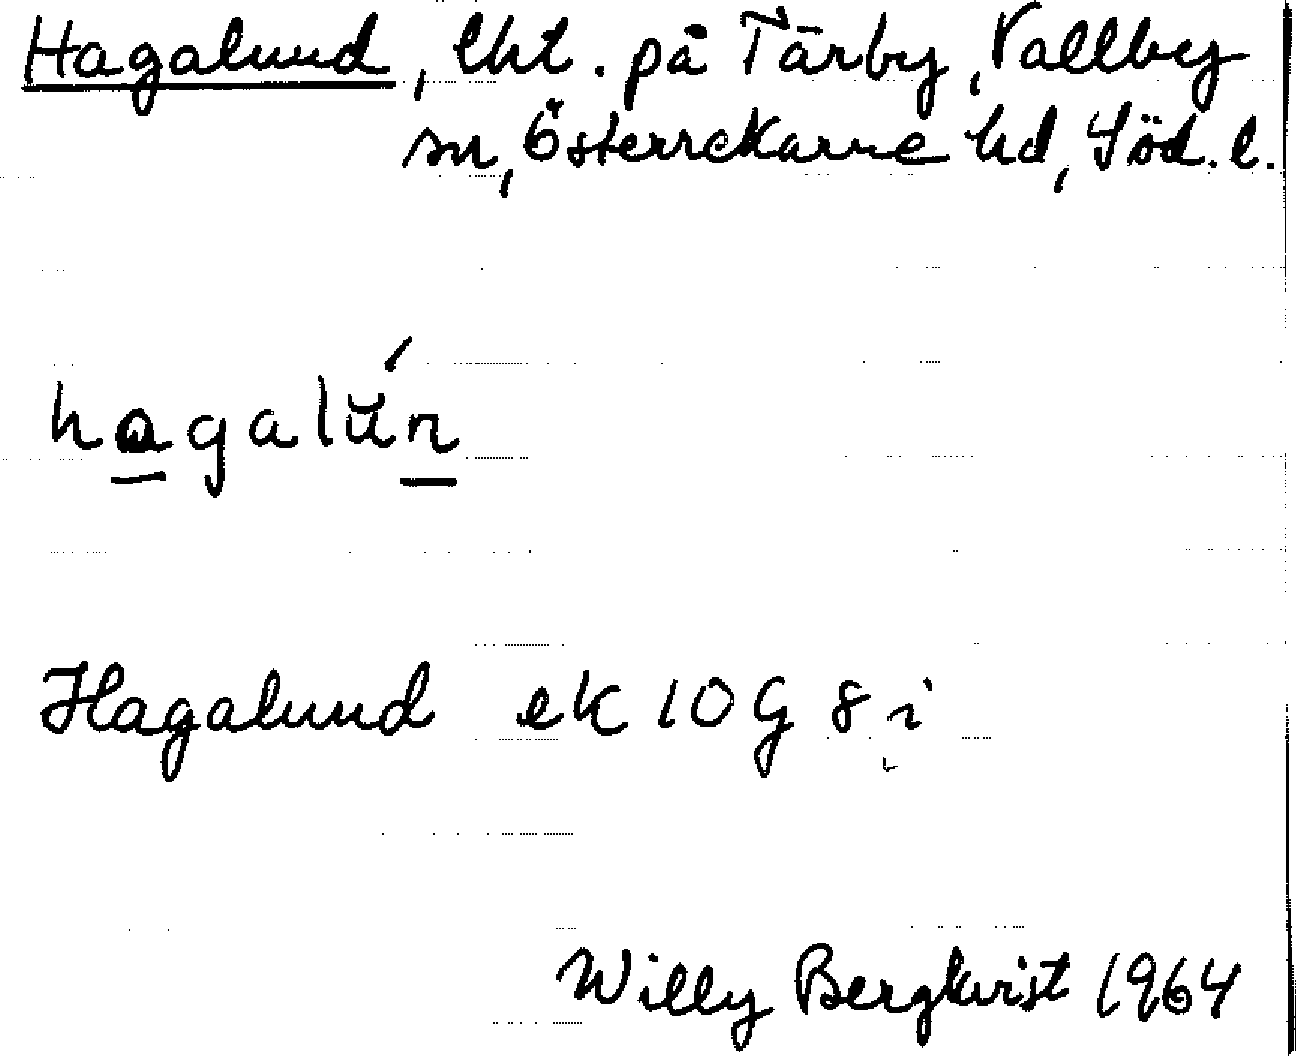 Hagalund, lht. på Tärby, Vallby
sn, Österrekarne hd, Söd. l.
hagalŭ́n
Hagalund ek 10 G 8 i
Willy Bergkvist 1964